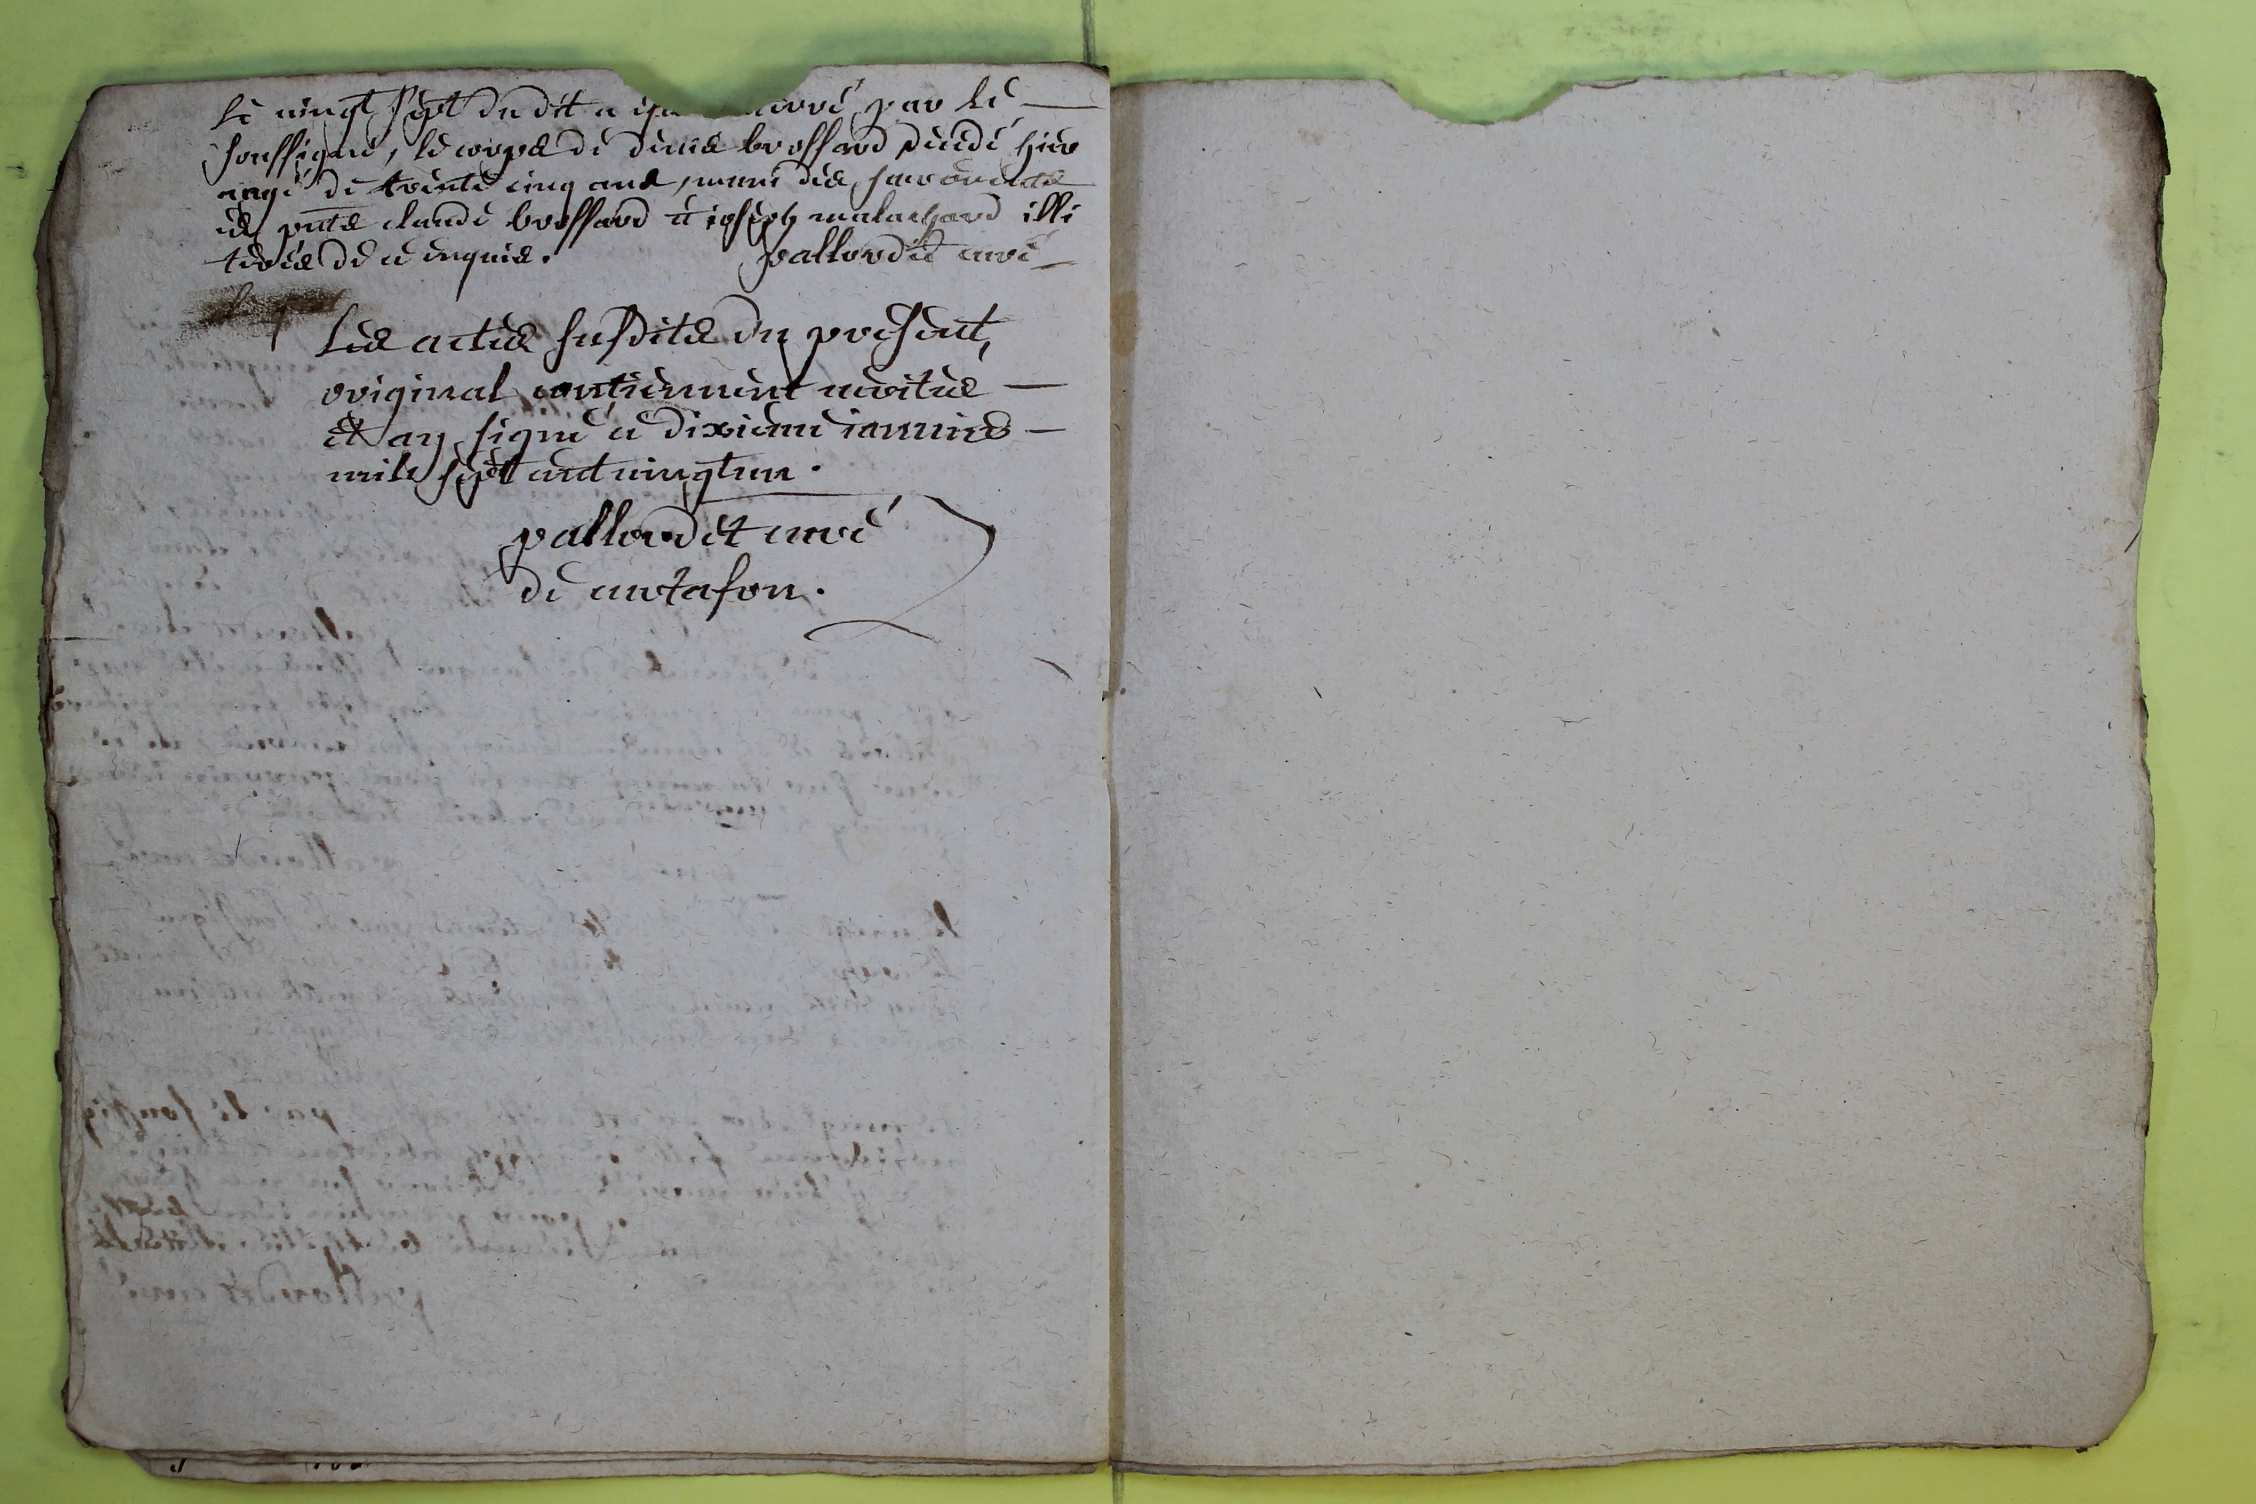 le vingt sept du dit a esté enterré par le
soussigné, le corps de denis brossard decedé hier
aagé de trente cinq ans, muni des sacrements
es pnts claude brossard et ioseph malachard illi
terés de ce enquis. pallordet curé
Les actes susdits du present
original contiennent verités
et ay signé ce dixieme ianvier
mile sept cent vingt un.
pallordet curé
de curtafon.